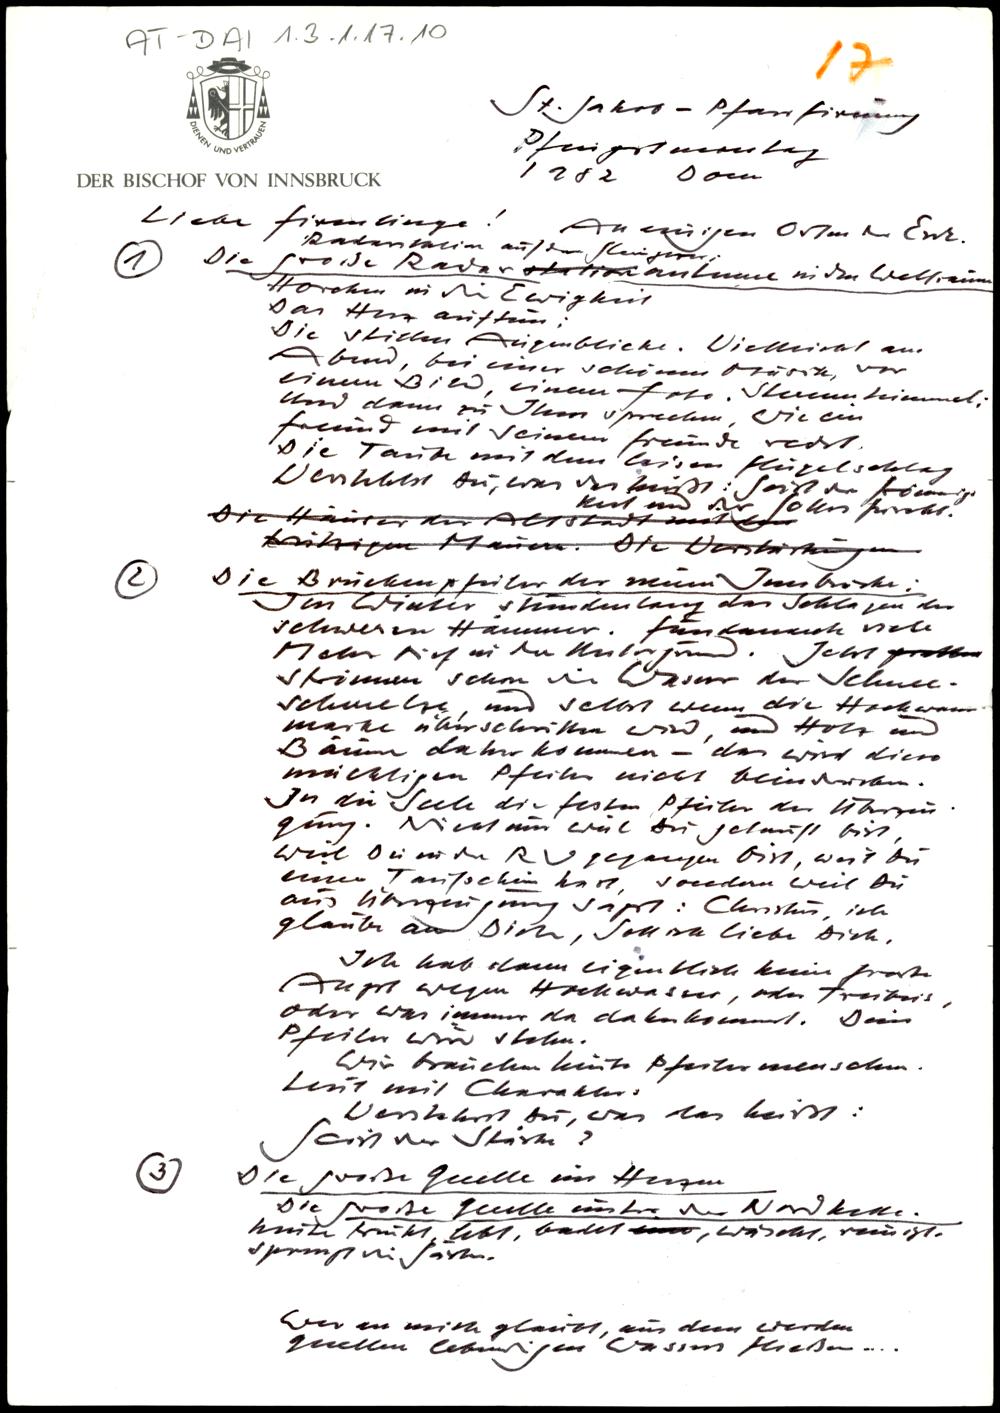 AT-DAI 1.3.1.17.10
17
DIENEN UND VERTRAUEN
DER BISCHOF VON INNSBRUCK
St. Jakob - Pfarrfirmung
Pfingstmontag
1982 Dom
Liebe Firmlinge! An einigen Orten der Erde.
Radarstation auf dem
① Die große Radarstationantenne in den Weltraum
Horchen in die Ewigkeit
Das Herz auftun:
Die stillen Augenblicke. Vielleicht am
Abend, bei einer schönen Musik, vor
einem Bild, einem Foto. Sternenhimmel:
Und dann zu Ihm sprechen, wie ein
Freund mit seinem Freunde redet.
Die Taube mit dem leisen Flügelschlag
Verstehst Du, was das heißt: Geist der Frömmig-
keit und der Gottesfurcht.
Die Häuser der Altstadt mit den
Mauern. Die Verstärkungen
② Die Brückenpfeiler der neuen Innbrücke:
Im Winter stundenlang das Schlagen der
schweren Hämmer. Fundamente viele
Meter tief in den Untergrund. Jetzt
strömen schon die Wasser der Schnee-
schmelze, und selbst wenn die Hochwasser-
marke überschritten wird, und Holz und
Bäume daherkommen - das wird diese
mächtigen Pfeiler nicht beeindrucken.
In der Seele die festen Pfeiler der Überzeu-
gung. Nicht nur weil Du getauft bist,
weil Du in den RU gegangen bist, weil Du
einen Taufschein hast, sondern weil Du
aus Überzeugung sagst: Christus, ich
glaube an Dich, Gott ich liebe Dich.
Ich hab dann eigentlich keine große
Angst wegen Hochwasser, oder Treibeis,
oder was immer da daherkommt. Dein
Pfeiler wird stehn.
Wir brauchen heute Pfeilermenschen.
Leut mit Charakter:
Verstehst Du, was das heißt:
Geist der Stärke?
③ Die große Quelle im Herzen
Die große Quelle unter der Nordkette.
heute trinkt, lebt, badet, wäscht, reinigt.
sprengt die Gärten.
Wer an mich glaubt, aus dem werden
Quellen lebendigen Wassers fließen....